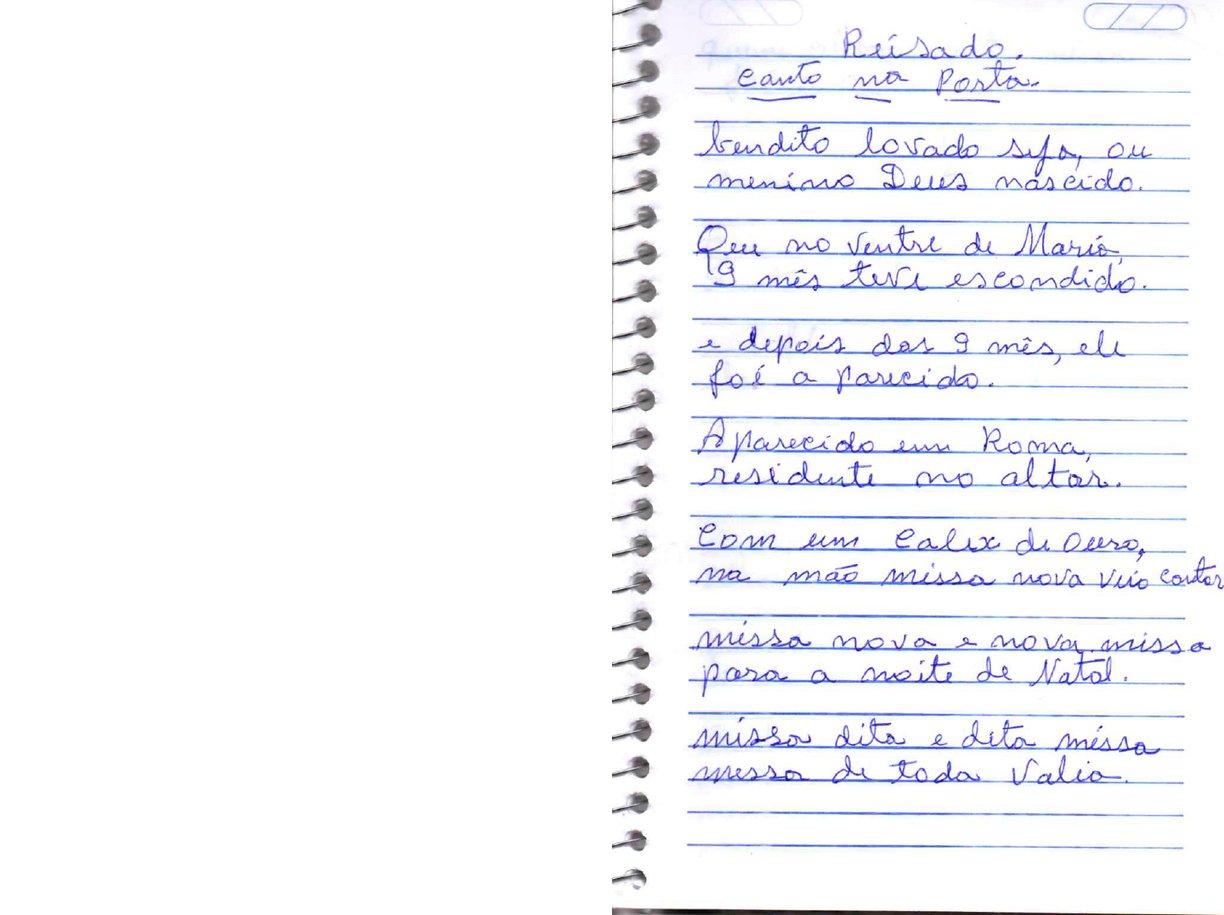 Reisado.
Canto na Porta.
bendito lovado seja, ou
menino Deus nascido.
Que no ventre de Maria,
9 mês teve escondido.
e depois dos 9 mês, ele
foi a parecido.
Aparecido em Roma,
residente no altar.
Com um Calix de Ouro,
na mão missa nova veio cantar
missa nova e nova missa
para a noite de Natal.
missa dita e dita missa
messa de toda Valia.